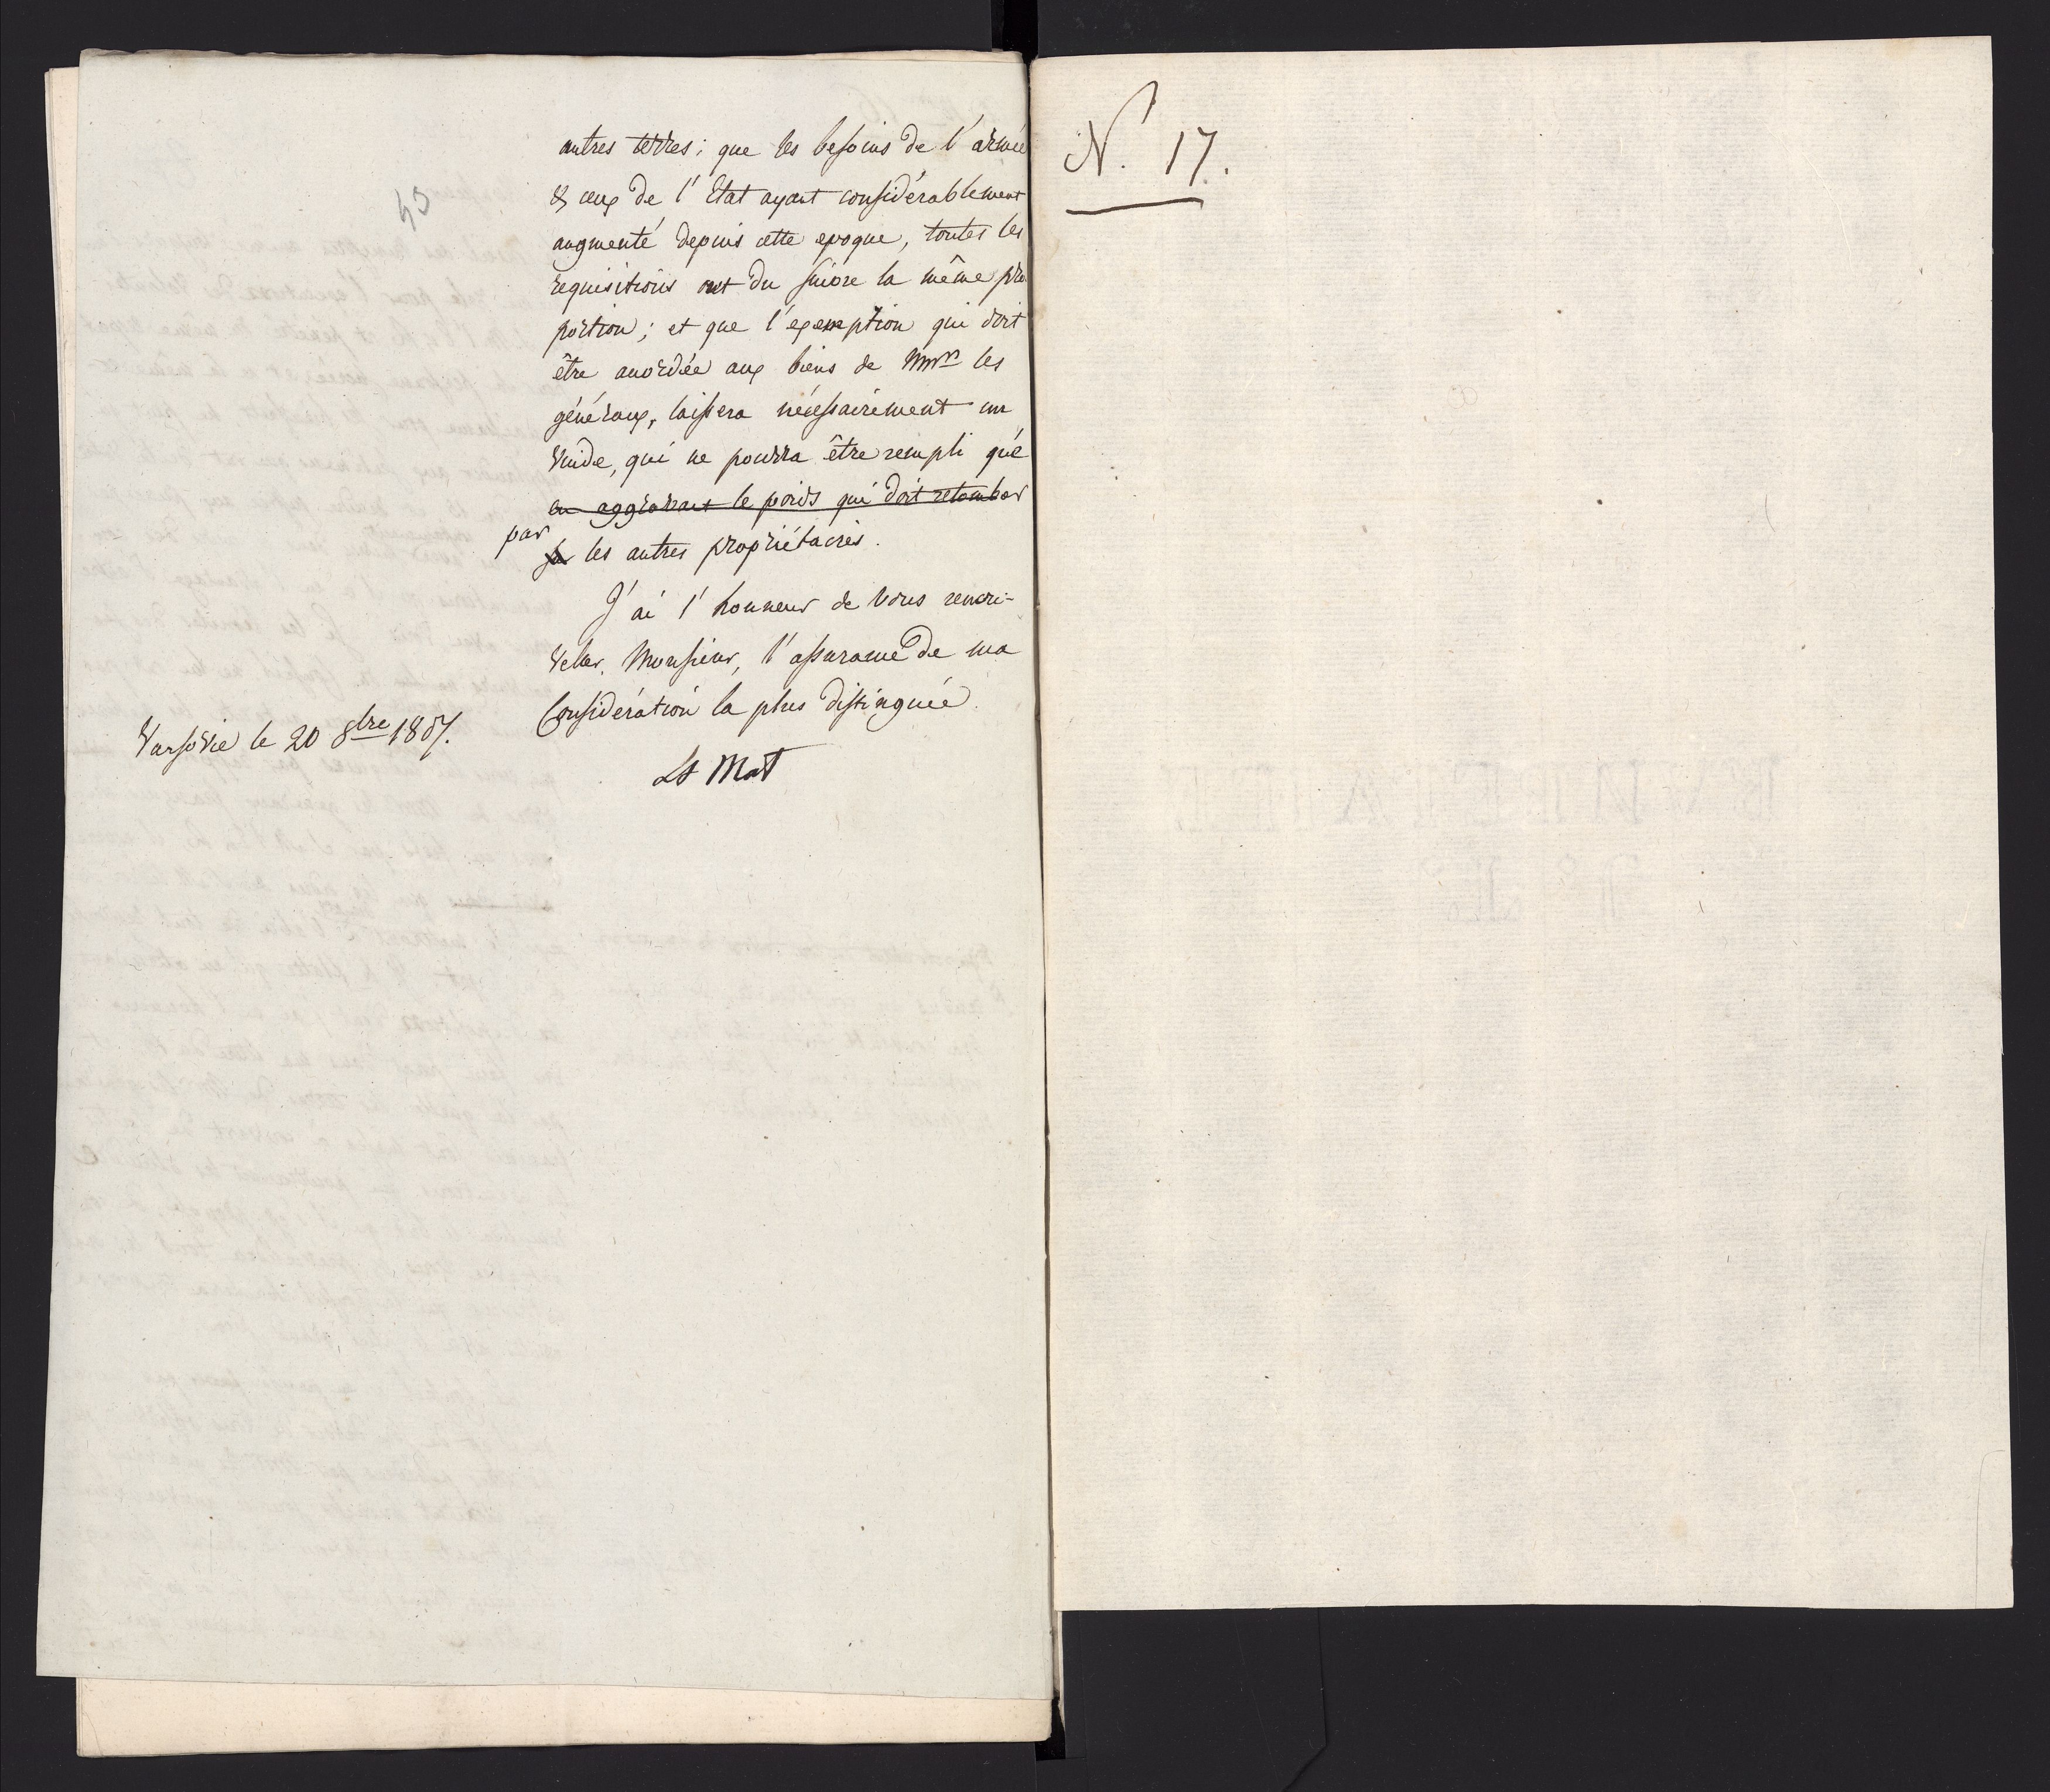 43
autres terres; que les besoins de l'armée
& ceux de l'Etat ayant considérablement
augmenté depuis cette epoque, toutes les
requisitions ont du suivre la même pro
portion; et que l'exemption qui doit
être accordée aux biens de Mrs les
généraux, laissera nécessairement un
vuide, qui ne pourra être rempli que
en aggravant le poids qui doit retomber
par
sur les autres propriétaires.
J'ai l'honneur de vous renou-
veller, Monsieur, l'assurance de ma
Considération la plus distinguée.
Varsovie le 20 8bre 1807.
N. 17.